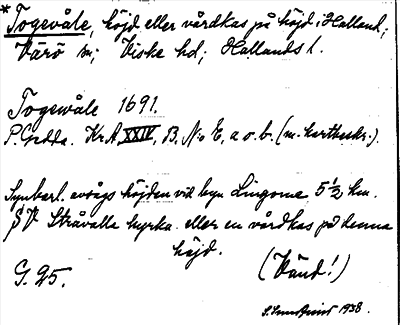 * Togevåle, höjd eller vårdkas på höjd i Halland;
Värö sn; Viske hd; Hallands l.
Togewåle 1691.
P. Gedda. Kr. A. XXIV, B. N:o E, a o. b. (m. kartbeskr.).
Synbarl. avsågs höjden vid byn Lingome 5½ km.
SV Stråvalla kyrka eller en vårdkas på denna
höjd.
G. 25.
(Vänd!)
1938.